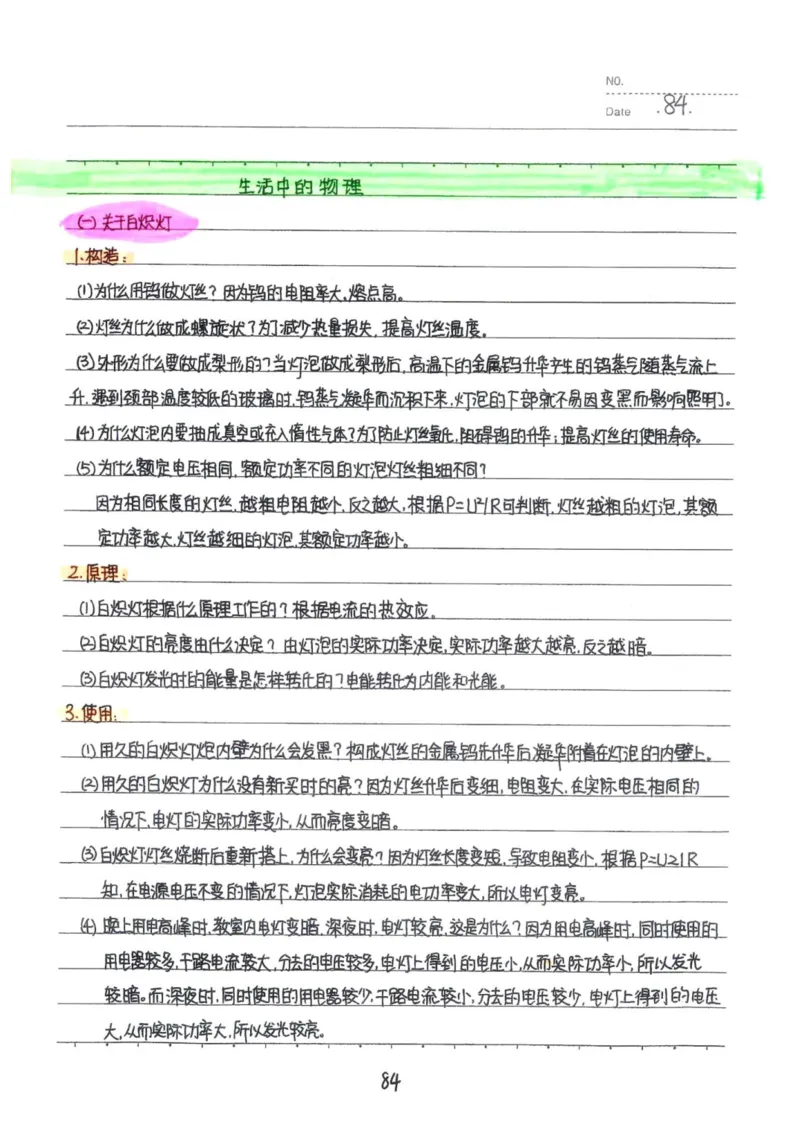 NO.
Date .84.
生活中的物理
(一)关于白炽灯
1.构造:
(1)为什么用钨做灯丝?因为钨的电阻率大,熔点高。
(2)灯丝为什么做成螺旋状?为了减少热量损失,提高灯丝温度。
(3)外形为什么要做成梨形的?当灯泡做成梨形后,高温下的金属钨升华产生的钨蒸气随蒸气流上
升,遇到颈部温度较低的玻璃时,钨蒸气凝华而沉积下来,灯泡的下部就不易因变黑而影响照明了。
(4)为什么灯泡内要抽成真空或充入惰性气体?为了防止灯丝氧化,阻碍钨的升华;提高灯丝的使用寿命。
(5)为什么额定电压相同,额定功率不同的灯泡灯丝粗细不同?
因为相同长度的灯丝,越粗电阻越小,反之越大,根据P=U²/R可判断,灯丝越粗的灯泡,其额
定功率越大,灯丝越细的灯泡,其额定功率越小。
2.原理:
(1)白炽灯根据什么原理工作的?根据电流的热效应。
(2)白炽灯的亮度由什么决定?由灯泡的实际功率决定,实际功率越大越亮,反之越暗。
(3)白炽灯发光时的能量是怎样转化的?电能转化为内能和光能。
3.使用:
(1)用久的白炽灯炮内壁为什么会发黑?构成灯丝的金属钨先升华后凝华附着在灯泡的内壁上。
(2)用久的白炽灯为什么没有新买时的亮?因为灯丝升华后变细,电阻变大,在实际电压相同的
情况下,电灯的实际功率变小,从而亮度变暗。
(3)白炽灯灯丝烧断后重新搭上,为什么会变亮?因为灯丝长度变短,导致电阻变小,根据P=U2/R
知,在电源电压不变的情况下,灯泡实际消耗的电功率变大,所以电灯变亮。
(4)晚上用电高峰时,教室内电灯变暗,深夜时,电灯较亮,这是为什么?因为用电高峰时,同时使用的
用电器较多,干路电流较大,分去的电压较多,电灯上得到的电压小,从而实际功率小,所以发光
较暗。而深夜时,同时使用的用电器较少,干路电流较小,分去的电压较少,电灯上得到的电压
大,从而实际功率大,所以发光较亮。
84